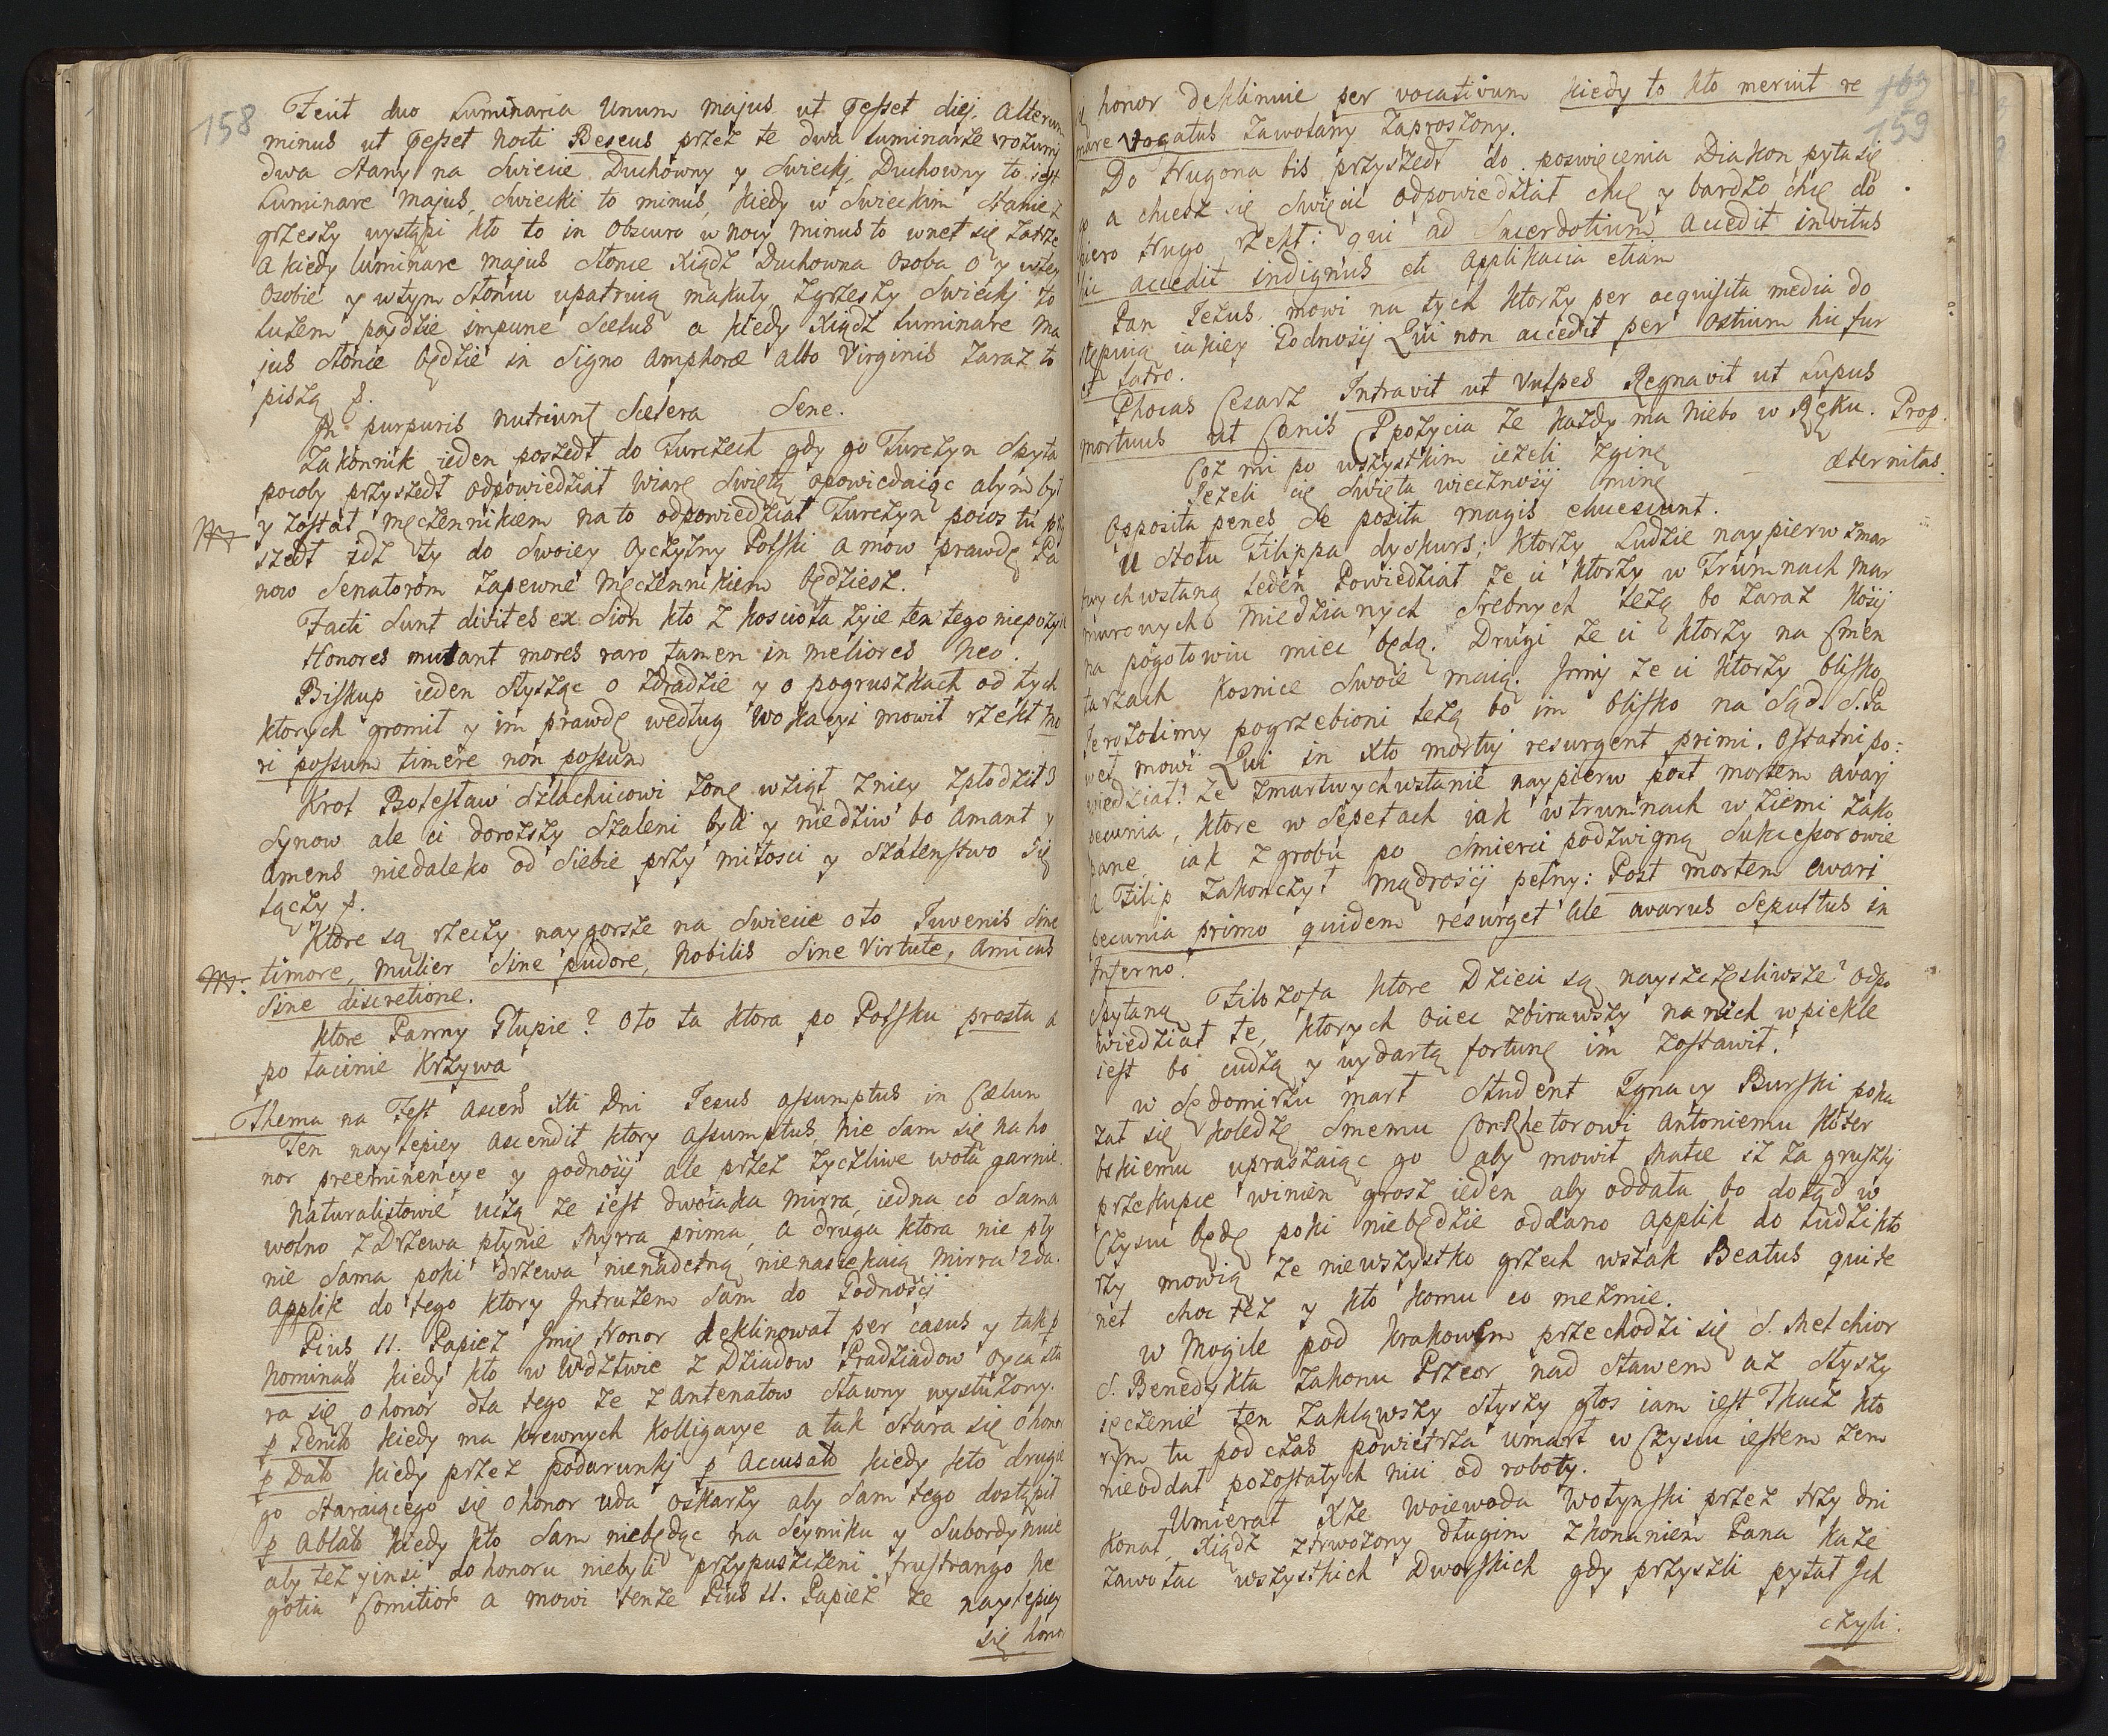 158
Fecit duo Luminaria Unum majus ut pesset diej. Alterum
minus ut pesset nocti Beseus przez te dwa luminarze rozumi
dwa Stany na Swiecie Duchowny y Swieckj, Duchowny to iest
Luminare Majus, Swiecki to minus, kiedy w Swieckim Stanie z
grzeszy wystąpi kto to in Obscuro w nocy minus to wnet się zatrze
a kiedy luminare majus Słonce Xiądz Duchowna Osoba o y wtey
Osobie y wtym Słoncu upatruią makuły zgrzeszy Swieckj to
luzem poydzie impune Scelus a kiedy Xiądz luminare ma
jus Słonce będzie in Signo Amphoræ albo Virginis zaraz to
piszą f.
In purpuris nutriunt Scelera Sene.
Zakonnik ieden poszedł do Turczech gdy go Turczyn Spyta
pocoby przyszedł odpowiedział Wiarę Swiętą opowiedaiąc abym był
y został męczennikiem na to odpowiedział Turczyn pocos tu prz
szedł idz ty do Swoiey Oyczyzny Polski a mow prawdę Pa
now Senatorom zapewne Męczennikiem będziesz.
Facti Sunt divites ex Sion kto z koscioła żyie ten tego niepożyie
Honores mutant mores raro tamen in meliores Neo.
Biskup ieden słysząc o zdradzie y o pogruszkach od tych
ktorych gromił y im prawdę według Wokacyi mowił rzekł mo
ri possum timere non possum
Krol Bolesław Szlachcicowi żonę wziął zniey zpłodził 3
Synow ale ci dorozszy Szaleni byli y niedziw bo Amant y
Amens niedaleko od Siebie przy miłosci y Szalenstwo Się
łączy f.
Ktore są rzeczy naygorsze na Swiecie oto Juvenis Sine
timore, Mulier Sine pudore, Nobilis Sine Virtute, Amicus
Sine discretione.
Ktore Panny Głupie? oto ta ktora po Polsku prosta a
po łacinie Krzywa
Thema na Fest Ascen Xti Dni Jesus assumptus in Cælum
Ten naylepiey ascendit ktory assumptus, nie Sam się na ho
nor preeminencye y godnosij ale przez życzliwe wota garnie.
Naturalistowie uczą że iest dwoiaka Mirra, iedna co Sama
wolno z Drzewa płynie Myrra prima, a druga ktora nie pły
nie Sama poki drzewa nienadetną nienasiekaią Mirra 2da.
Applik do tego ktory Intruzem Sam do Godnosij
Pius II. Papież Imię Honor deklinował per casus y tak p
Nominato kiedy kto w Wdztwie z Dziadow Pradziadow oyca sta
ra się o honor dla tego że z Antenatow Sławny wysłużony.
p Genito kiedy ma krewnych Kolligacye a tak Stara się o honor
p Dato kiedy przez podarunkj p Accusato kiedy kto drugie
go Staraiącego się o honor uda oskarży aby Sam tego dostąpił
p Ablato kiedy kto Sam niebędąc na Seymiku y Subordynuie
aby też yinsi do honoru niebyli przypuszczeni frustrango ne
gotia Comitior a mowi tenze Pius II. Papież że naylepiey
się honor
169
159
y honor deklinuie per vocativum kiedy to kto meruit re
nare Vocatus zawołany zaproszony.
Do Hugona bis przyszedł do poswięcenia Diakon pyta się
a chcesz się Swięcic odpowiedział chcę y bardzo chcę do
piero Hugo rzekł: qui ad Sacerdotium Accedit invitus
hic accedit indignus et Applikacia etiam
Pan Jezus mowi na tych ktorzy per acquisita media do
stępuią iakiey Godnosij Qui non accedit per Ostium hic fur
et Latro.
Phocas Cesarz Intravit ut Vulpes Regnavit ut Lupus
mortuus ut Canis Ppożycia że każdy ma Niebo w Ręku. Prop.
Coż mi po wszystkim ieżeli zginę æternitas.
Jeżeli cię Swięta wiecznosij minę
Opposita penes Se posita magis elucescunt.
U Stołu Filippa dyskurs; ktorzy Ludzie naypierw zmar
twychwstaną Jeden Powiedział że ci ktorzy w Trumnach Mar
murowych Miedzianych Srebnych leżą bo zaraz kosij
na pogotowiu miec będą. Drugi że ci ktorzy na Cmen
tarzach Kosnice Swoie maią. Inny że ci ktorzy blisko
Jerozolimy pogrzebioni leżą bo im blisko na Sąd. S. Pa
weł mowi Qui in Xto mortuj resurgent primi. Ostatni po:
wiedział: że zmartwychwstanie naypierw post mortem avarj
pecunia, ktore w Sepetach iak w trumnach w ziemi zako
pane, iak z grobu po Smierci podzwigną Sukcessorowie
A Filip zakonczył mądrosij pełny: Post mortem avari
pecunia primo quidem resurget ale avarus Sepultus in
Inferno.
Spytaną Filozofa ktore Dzieci są nayszczęsliwsze? odpo
wiedział te, ktorych Ociec zbirawszy na nich w piekle
iest bo cudzą y wydartą fortunę im zostawił.
W Sędomirzu marł Student Ignacy Burski poka
zał się koledze Smemu ConRhetorowi Antoniemu Koter
bskiemu upraszaiąc go aby mowił Matce iż za gruszkj
przekupce winien grosz ieden aby oddała bo dotąd w
Czyscu będę poki niebędzie oddano Applik do ludzi kto
rzy mowią że niewszystko grzech wszak Beatus qui te
net choc też y kto komu co wezmie.
W Mogile pod Krakowem przechodzi się S. Melchior
S. Benedykta Zakonu Przeor nad Stawem aż słyszy
ięczenie ten zaklawszy słyszy głos iam iest Tkacz kto
rym tu podczas powietrza umarł w Czyscu iestem żem
nieoddał pozostałych nici od roboty.
Umierał Xże Woiewoda Wołynski przez trzy dni
konał, Xiądz ztrwożony długim zkonaniem Pana każe
zawołac wszystkich Dworskich gdy przyszli pytał Ich
czyli.